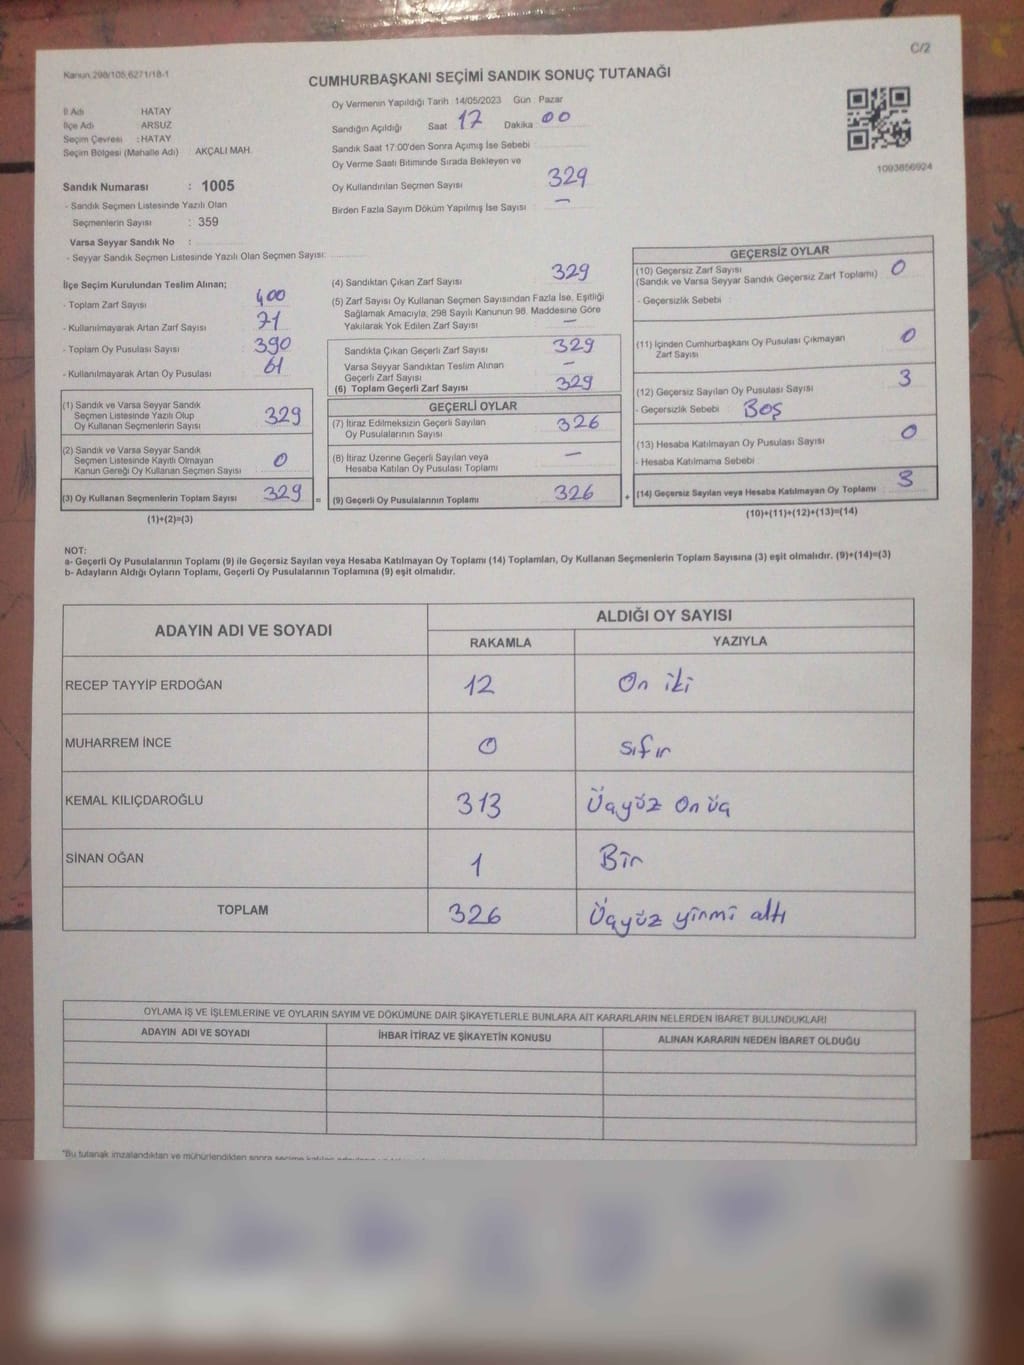 C/2
Kanun 298/105,6271/18-1
CUMHURBAŞKANI SEÇİMİ SANDIK SONUÇ TUTANAĞI
İl Adı HATAY
İlçe Adı ARSUZ
Seçim Çevresi : HATAY
Seçim Bölgesi (Mahalle Adı) AKÇALI MAH.
Sandık Numarası : 1005
- Sandık Seçmen Listesinde Yazılı Olan
Seçmenlerin Sayısı : 359
Varsa Seyyar Sandık No :
- Seyyar Sandık Seçmen Listesinde Yazılı Olan Seçmen Sayısı:
Oy Vermenin Yapıldığı Tarih 14/05/2023 Gün Pazar
Sandığın Açıldığı Saat 17 Dakika 00
Sandık Saat 17:00'den Sonra Açımış İse Sebebi
Oy Verme Saati Bitiminde Sırada Bekleyen ve
Oy Kullandırılan Seçmen Sayısı 329
Birden Fazla Sayım Döküm Yapılmış İse Sayısı —
1093856924
İlçe Seçim Kurulundan Teslim Alınan;
- Toplam Zarf Sayısı 400
- Kullanılmayarak Artan Zarf Sayısı 71
- Toplam Oy Pusulası Sayısı 390
- Kullanılmayarak Artan Oy Pusulası 61
(1) Sandık ve Varsa Seyyar Sandık
Seçmen Listesinde Yazılı Olup
Oy Kullanan Seçmenlerin Sayısı 329
(2) Sandık ve Varsa Seyyar Sandık
Seçmen Listesinde Kayıtlı Olmayan
Kanun Gereği Oy Kullanan Seçmen Sayısı 0
(3) Oy Kullanan Seçmenlerin Toplam Sayısı 329 =
(1)+(2)=(3)
(4) Sandıktan Çıkan Zarf Sayısı 329
(5) Zarf Sayısı Oy Kullanan Seçmen Sayısından Fazla İse, Eşitliği
Sağlamak Amacıyla, 298 Sayılı Kanunun 98. Maddesine Göre
Yakılarak Yok Edilen Zarf Sayısı —
Sandıkta Çıkan Geçerli Zarf Sayısı 329
Varsa Seyyar Sandıktan Teslim Alınan
Geçerli Zarf Sayısı —
(6) Toplam Geçerli Zarf Sayısı 329
GEÇERLİ OYLAR
(7) İtiraz Edilmeksizin Geçerli Sayılan
Oy Pusulalarının Sayısı 326
(8) İtiraz Üzerine Geçerli Sayılan veya
Hesaba Katılan Oy Pusulası Toplamı —
(9) Geçerli Oy Pusulalarının Toplamı 326 +
GEÇERSİZ OYLAR
(10) Geçersiz Zarf Sayısı 0
(Sandık ve Varsa Seyyar Sandık Geçersiz Zarf Toplamı)
- Geçersizlik Sebebi
(11) İçinden Cumhurbaşkanı Oy Pusulası Çıkmayan 0
Zarf Sayısı
(12) Geçersiz Sayılan Oy Pusulası Sayısı 3
- Geçersizlik Sebebi Boş
(13) Hesaba Katılmayan Oy Pusulası Sayısı 0
- Hesaba Katılmama Sebebi
(14) Geçersiz Sayılan veya Hesaba Katılmayan Oy Toplamı 3
(10)+(11)+(12)+(13)=(14)
NOT:
a- Geçerli Oy Pusulalarının Toplamı (9) ile Geçersiz Sayılan veya Hesaba Katılmayan Oy Toplamı (14) Toplamları, Oy Kullanan Seçmenlerin Toplam Sayısına (3) eşit olmalıdır. (9)+(14)=(3)
b- Adayların Aldığı Oyların Toplamı, Geçerli Oy Pusulalarının Toplamına (9) eşit olmalıdır.
ADAYIN ADI VE SOYADI ALDIĞI OY SAYISI
RAKAMLA YAZIYLA
RECEP TAYYİP ERDOĞAN 12 On iki
MUHARREM İNCE 0 sıfır
KEMAL KILIÇDAROĞLU 313 Üçyüz on üç
SİNAN OĞAN 1 Bir
TOPLAM 326 Üçyüz yirmi altı
OYLAMA İŞ VE İŞLEMLERİNE VE OYLARIN SAYIM VE DÖKÜMÜNE DAİR ŞİKAYETLERLE BUNLARA AİT KARARLARIN NELERDEN İBARET BULUNDUKLARI
ADAYIN ADI VE SOYADI İHBAR İTİRAZ VE ŞİKAYETİN KONUSU ALINAN KARARIN NEDEN İBARET OLDUĞU
"Bu tutanak imzalandıktan ve mühürlendikten sonra